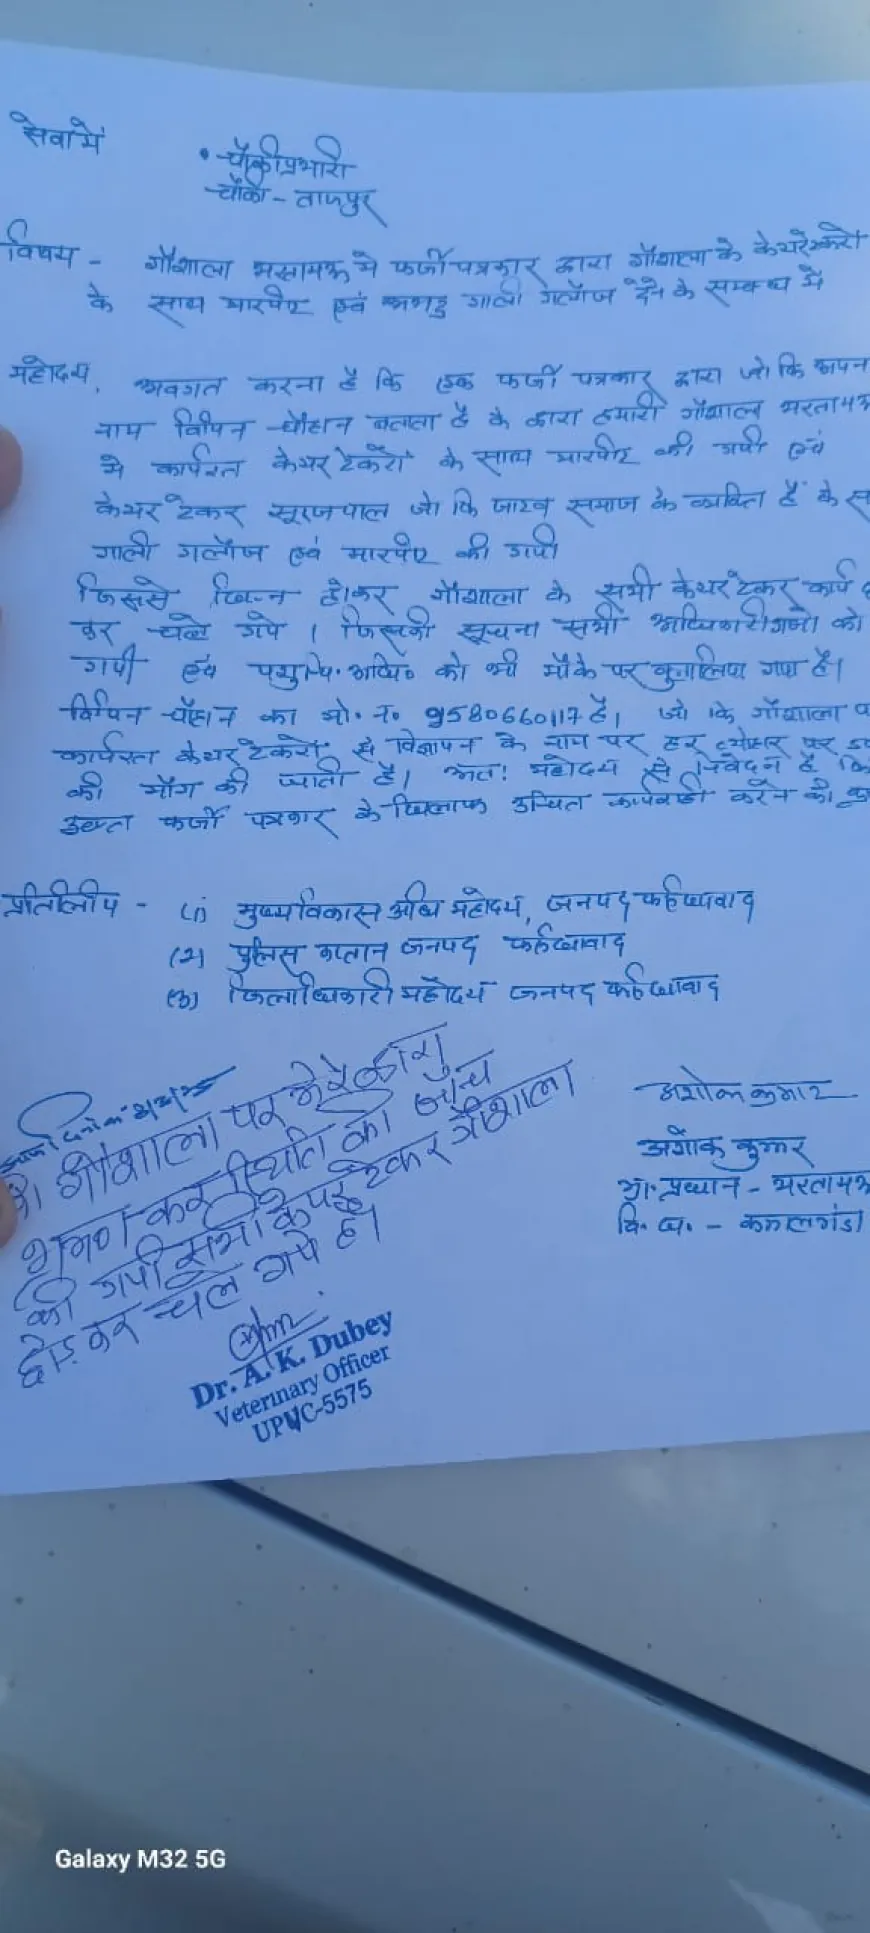 सेवा में
चौकी प्रभारी
चौकी - ताजपुर
विषय - गौशाला भरतामऊ मे फर्जी पत्रकार द्वारा गौशाला के केयरटेकरो
के साथ मारपीट एवं अभद्र गाली गलौज देने के सम्बन्ध में
महोदय, अवगत करना है कि एक फर्जी पत्रकार द्वारा जो कि अपना
नाम विपिन चौहान बताता है के द्वारा हमारी गौशाला भरतामऊ
मे कार्यरत केयर टेकरों के साथ मारपीट की गयी एवं
केयर टेकर सूरजपाल जो कि जाटव समाज के व्यक्ति हैं के
गाली गलौज एवं मारपीट की गयी
जिससे खिन्न होकर गौशाला के सभी केयर टेकर कार्य
कर चले गये । जिसकी सूचना सभी अधिकारीगणो को
गयी एवं पशुचि. अधि० को भी मौके पर बुला लिया गया है।
विपिन चौहान का मो. न० 9580660117 है। जो कि गौशाला
कार्यरत केयर टेकरों से विज्ञापन के नाम पर हर त्योहार पर
की माँग की जाती है। अतः महोदय से निवेदन है कि
उक्त फर्जी पत्रकार के खिलाफ उचित कार्यवाही करने की
प्रतिलिपि - (1) मुख्य विकास अधि महोदय, जनपद फर्रुखाबाद
(2) पुलिस कप्तान जनपद फर्रुखाबाद
(3) जिलाधिकारी महोदय जनपद फर्रुखाबाद
आज दिनांक
गौशाला पर मेरे द्वारा
भ्रमण कर स्थिति की जाँच
की गयी सभी केयर टेकर गौशाला
छोड़ कर चले गये है।
अशोक कुमार
अशोक कुमार
ग्रा. प्रधान - भरतामऊ
वि. ख. - कमालगंज
Dr. A. K. Dubey
Veterinary Officer
UPVC-5575
Galaxy M32 5G